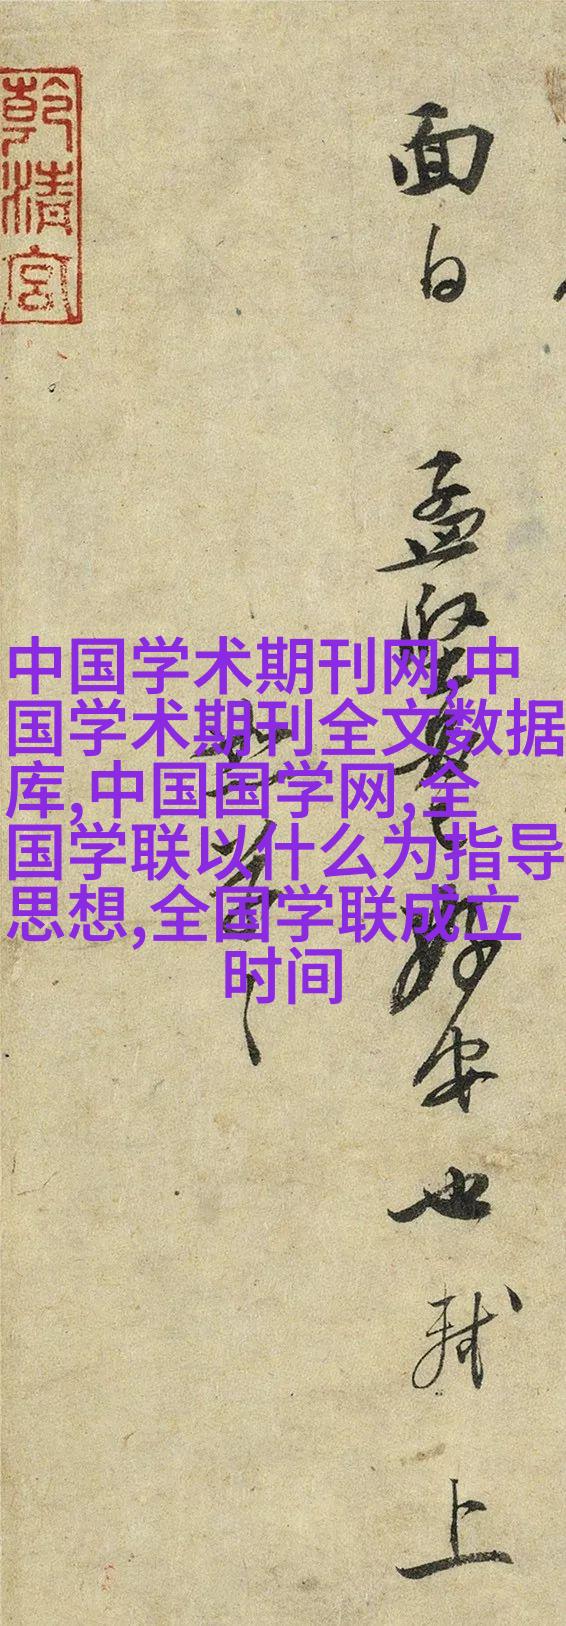 中国学术期刊网,中
国学术期刊全文数据
库,中国国学网,全
国学联以什么为指导
思想,全国学联成立
时间
面白 孟堅必已好安也 軾 上
恕草草
乾清宮